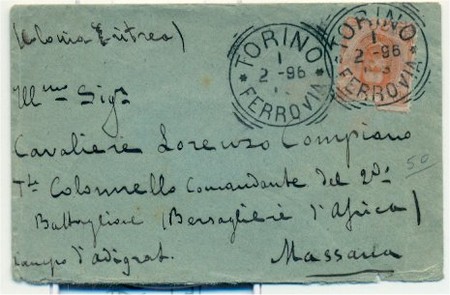 (Colonia Eritrea)
TORINO
1
2 -96
FERROVIA
TORINO
1
2 -96
FERROVIA
Ill.mo Sig.r
Cavaliere Lorenzo Compiano
T.te Colonnello Comandante del 2.do
Battaglione (Bersaglieri d'Africa)
campo d'adigrat.
Massaua
50